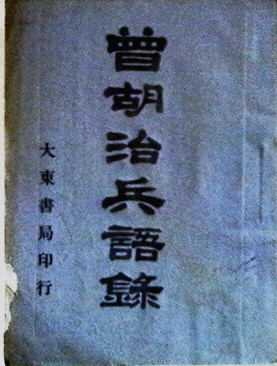 曾胡治兵語錄
大東書局印行